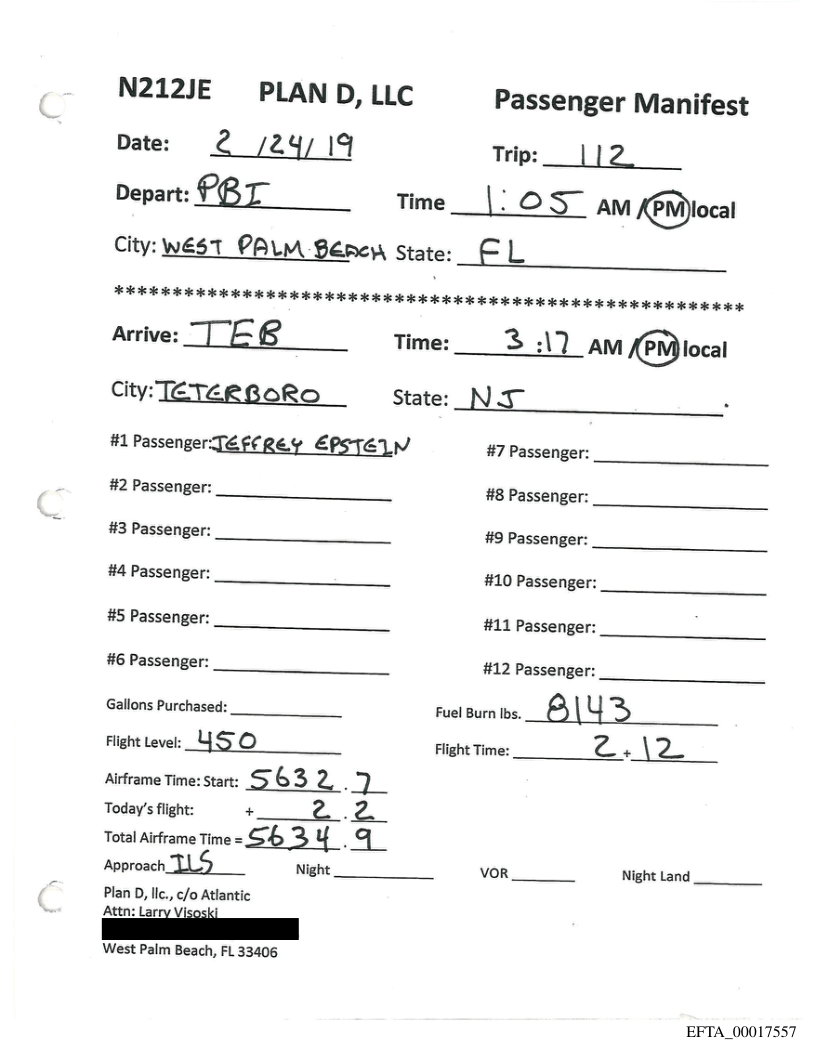 N212JE PLAN D, LLC Passenger Manifest
Date: 2 /24/ 19 Trip: 112
Depart: PBI Time 1:05 AM /PM local
City: WEST PALM BEACH State: FL
******************************************************
Arrive: TEB Time: 3:17 AM /PM local
City: TETERBORO State: NJ
#1 Passenger: JEFFREY EPSTEIN #7 Passenger:
#2 Passenger: #8 Passenger:
#3 Passenger: #9 Passenger:
#4 Passenger: #10 Passenger:
#5 Passenger: #11 Passenger:
#6 Passenger: #12 Passenger:
Gallons Purchased: Fuel Burn lbs. 8143
Flight Level: 450 Flight Time: 2 + 12
Airframe Time: Start: 5632.7
Today's flight: + 2.2
Total Airframe Time = 5634.9
Approach ILS Night VOR Night Land
Plan D, llc., c/o Atlantic
Attn: Larry Visoski
West Palm Beach, FL 33406
EFTA_00017557